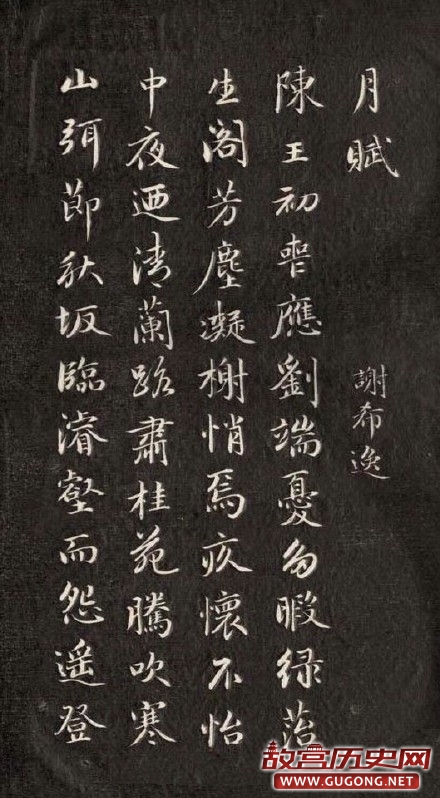 月賦
謝希逸
陳王初喪應劉端憂多暇緑苔
生閣芳塵凝榭悄焉疚懷不怡
中夜迺清蘭路肅桂苑騰吹寒
山弭節秋坂臨濬壑而怨遥登
故宫历史网
WWW.GUGONG.NET